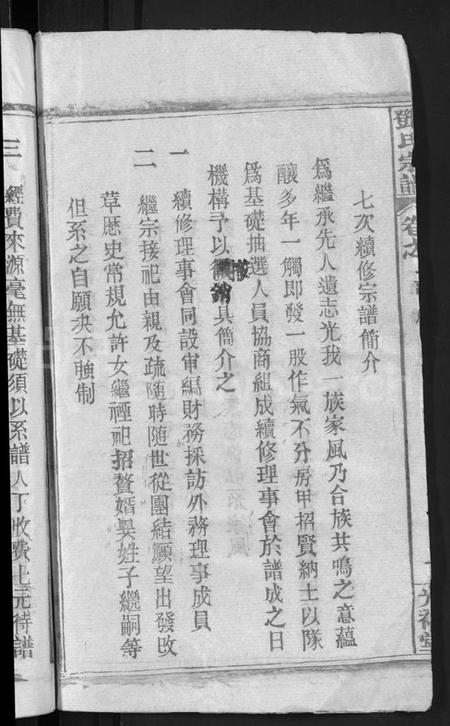 鄧氏宗譜
卷之
七次續修宗譜簡介
為繼承先人遺志光我一族家風乃合族共鳴之意蘊
釀多年一觸即發一股作氣不分房甲招賢納士以隊
為基礎抽選人員協商組成續修理事會於譜成之日
機構予以撤銷具簡介之
一 續修理事會同設审編財務採訪外務理事成員
二 繼宗接祀由親及疏隨時随世從團結願望出發改
革歷史常規允許女繼禋祀招贅婿異姓子繼嗣等
但系之自願決不強制
三 經費來源毫無基礎須以系譜人丁收費七元待譜